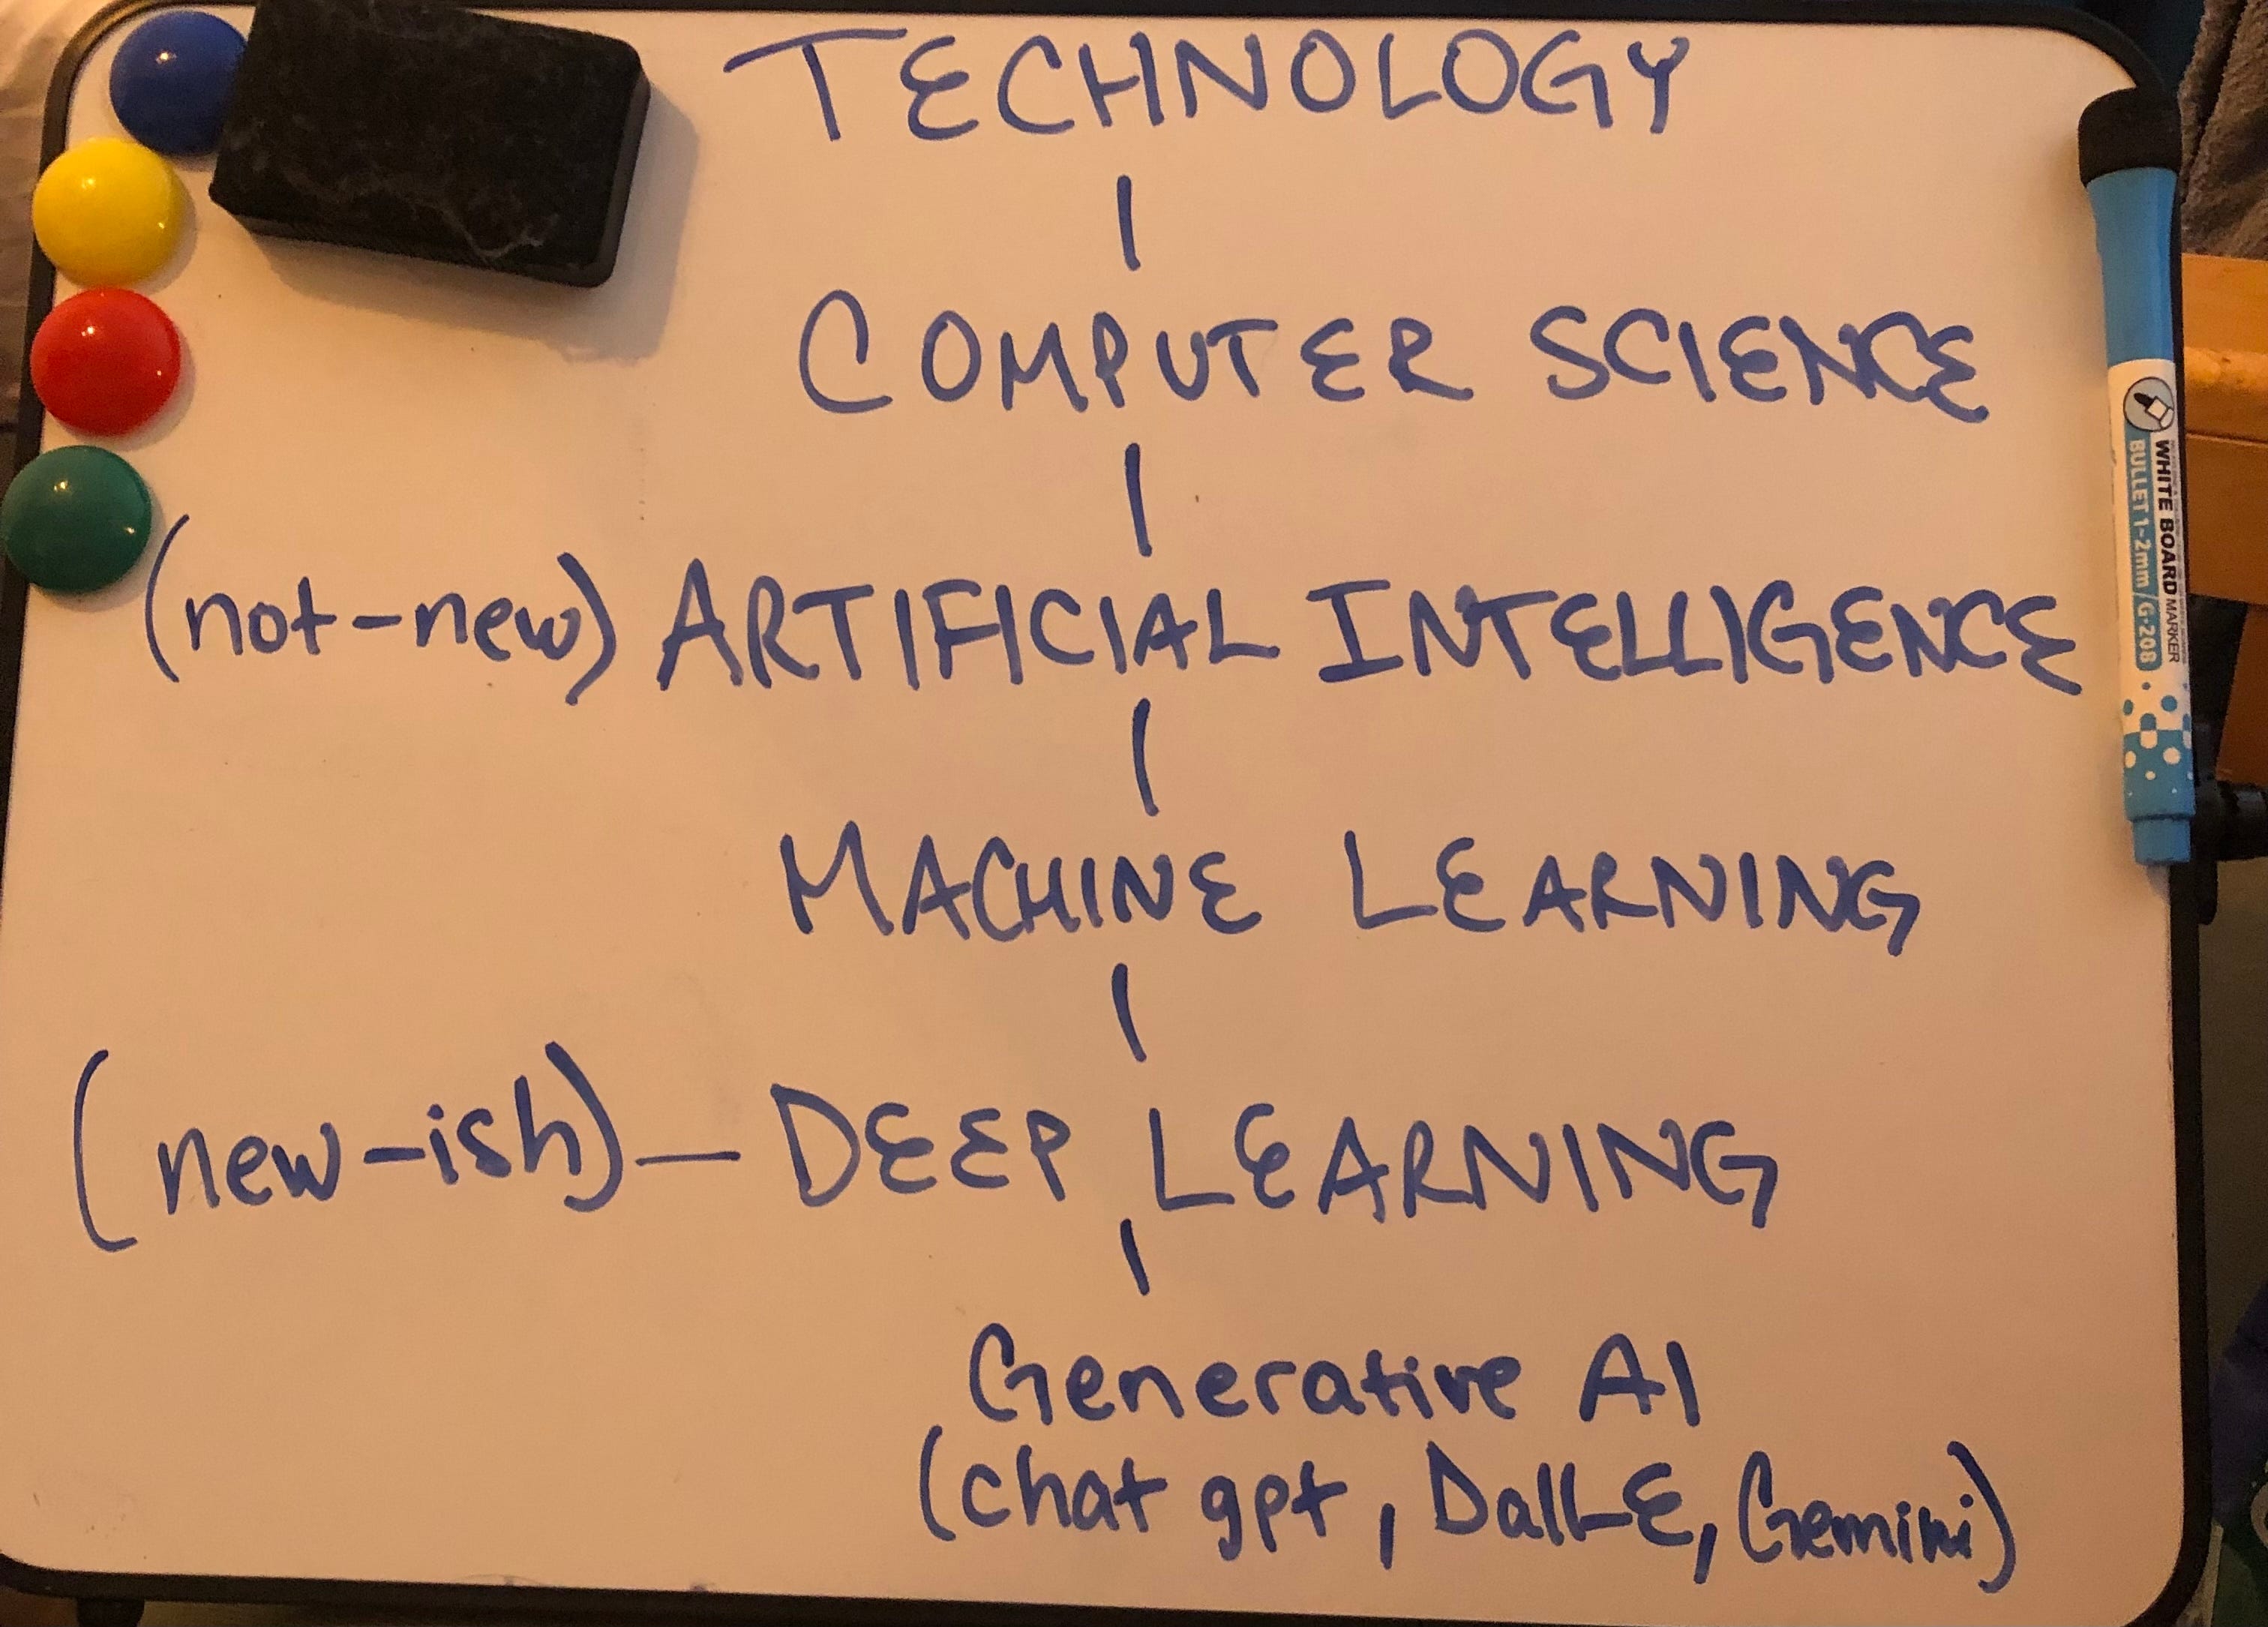 TECHNOLOGY
COMPUTER SCIENCE
(not-new) ARTIFICIAL INTELLIGENCE
MACHINE LEARNING
(new-ish) — DEEP LEARNING
Generative AI
(chat gpt, DallE, Gemini)
WHITE BOARD MARKER
BULLET 1-2mm/G-208